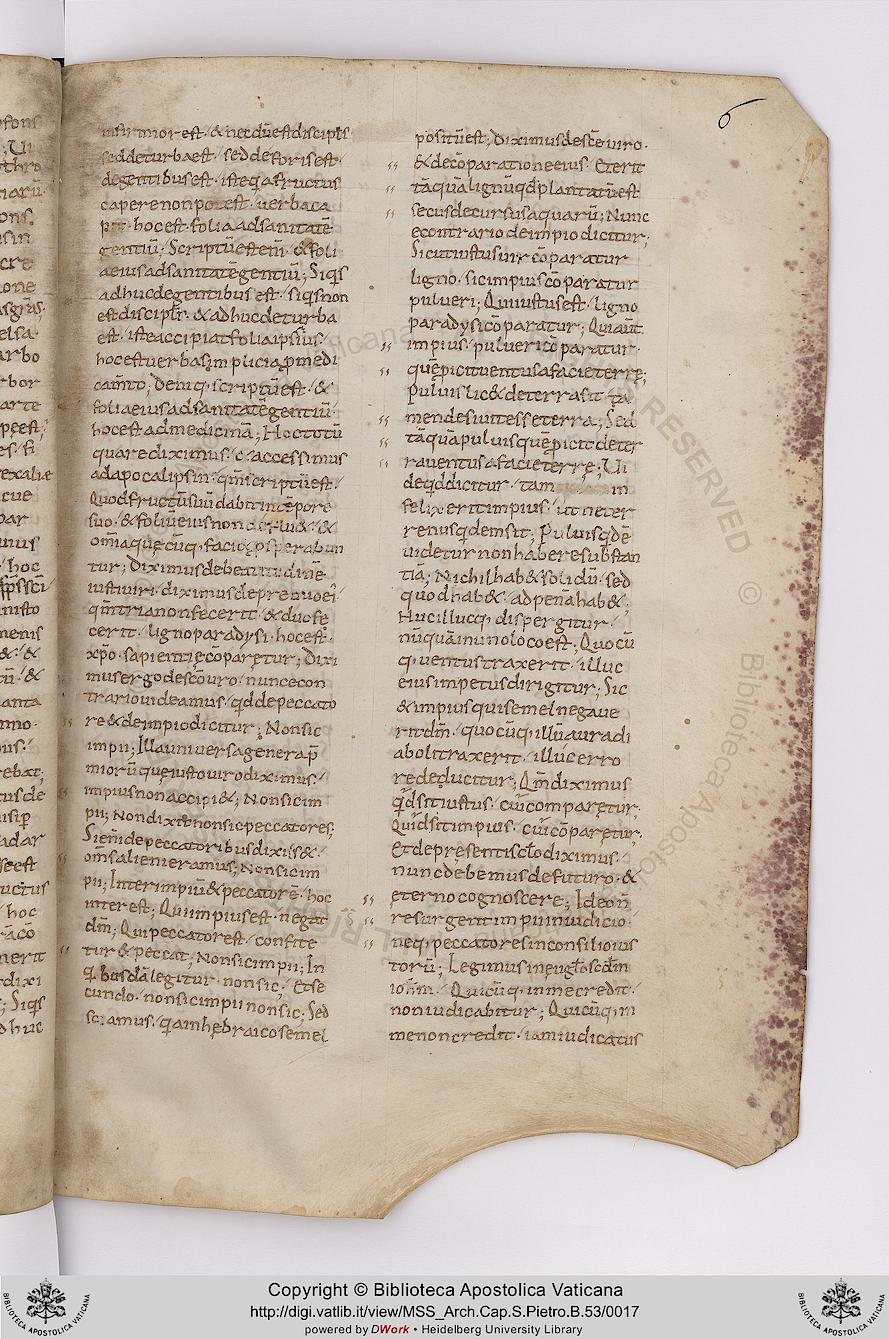 6
infirmior est · & necdū est discipl's
sed de turba est · sed deforis est ·
de gentibus est · iste q̨ a fructus
capere non potest · uerba ca
pit · hoc est · folia ad sanitatē
gentiū ; Scriptū est eni̅ · & foli
a eius ad sanitatē gentiū ; Siq̅s
adhuc de gentibus est · siq̅s non
est discipl's · & adhuc de turba
est · iste accipiat folia ipsius ·
hoc est uerba simplicia p̱ medi
cam̅to ; Deniq; scriptū est · &
folia eius ad sanitatē gentiū ·
hoc est ad medicinā ; Hoc totū
quare diximus · accessimus
ad apocalipsin · qm̅ scriptū est ·
Quod fructū suū dabit in tēpore
suo · & foliū eius non defluet · &
om̅ia quęcūq; faciet p̱sperabun
tur ; Diximus de beatitudinē
iusti uiri · diximus de p̱renuoei
qm̅ tria non fecerit · & duo fe
cerit · ligno paradysi · hoc est ·
xp̅o · sapientię cōparętur ; Dixi
mus ergo de sc̅o uiro · nunc econ
trario uideamus · qd̅ de peccato
re & de impio dicitur ; Non sic
impii ; Illa uniuersa genera p̱
miorū que iusto uiro diximus ·
impius non accipi& ; Non sic im
pii ; Non dixit non sic peccatores ;
Si eni̅ de peccatoribus dixiss& ·
om̅s alieni eramus ; Non sic im
pii ; Inter impiū & peccatorē · hoc
interest ; Qui impius est · negat
dm̅ ; Qui peccator est · confite
tur & peccat ; Non sic impii ; In
q̅busdā legitur · non sic ; Et se
cundo · non sic impii non sic ; Sed
sciamus · q̅a in hębraico semel
positū est ; Diximus de sc̅o uiro ·
& de cōparatione eius · Et erit
tāquā lignū qd̅ plantatū est
secus decursus aquarū ; Nunc
econtrario de impio dicitur ;
Sicut iustus uir cōparatur
ligno · sic impius cōparatur
pulueri ; Qui iustus est · ligno
paradysi cōparatur ; Qui aut̅
impius · pulueri cōparatur ·
quē p̱icit uentus a facie terrę ;
Puluis lic& de terra sit · ta
men desiuit esse terra ; Sed
tāquā puluis quē p̱icit de ter
ra uentus a facie terrę ; Ui
de qd̅ dicitur · tam in
felix erit impius · ut ne ter
renus q̅dem sit ; Puluis q̅dē
uidetur non habere substan
tiā ; Nichil hab& solidū · sed
quod hab& · ad penā hab& ;
Huc illucq; dispergitur ·
nūquā in uno loco est ; Quocū
q; uentus traxerit · illuc
eius impetus dirigitur ; Sic
& impius qui semel negaue
rit dm̅ · quocūq; illū aura di
aboli traxerit · illuc erro
re dęducitur ; Qm̅ diximus
qd̅ sit iustus · cui comparętur ·
Quid sit impius · cui cōparętur ·
Et de pręsenti sc̅lo diximus ·
nunc debemus de futuro · &
ęterno cognoscere ; Ideo n̅
resurgent impii in iudicio ·
neq; peccatores in consilio ius
torū ; Legimus in euġlo scd̅m
ioh̅m · Quicūq; in me credit ·
non iudicabitur ; Quicūq; in
me non credit · iam iudicatus
Copyright © Biblioteca Apostolica Vaticana
http://digi.vatlib.it/view/MSS_Arch.Cap.S.Pietro.B.53/0017
powered by DWork • Heidelberg University Library